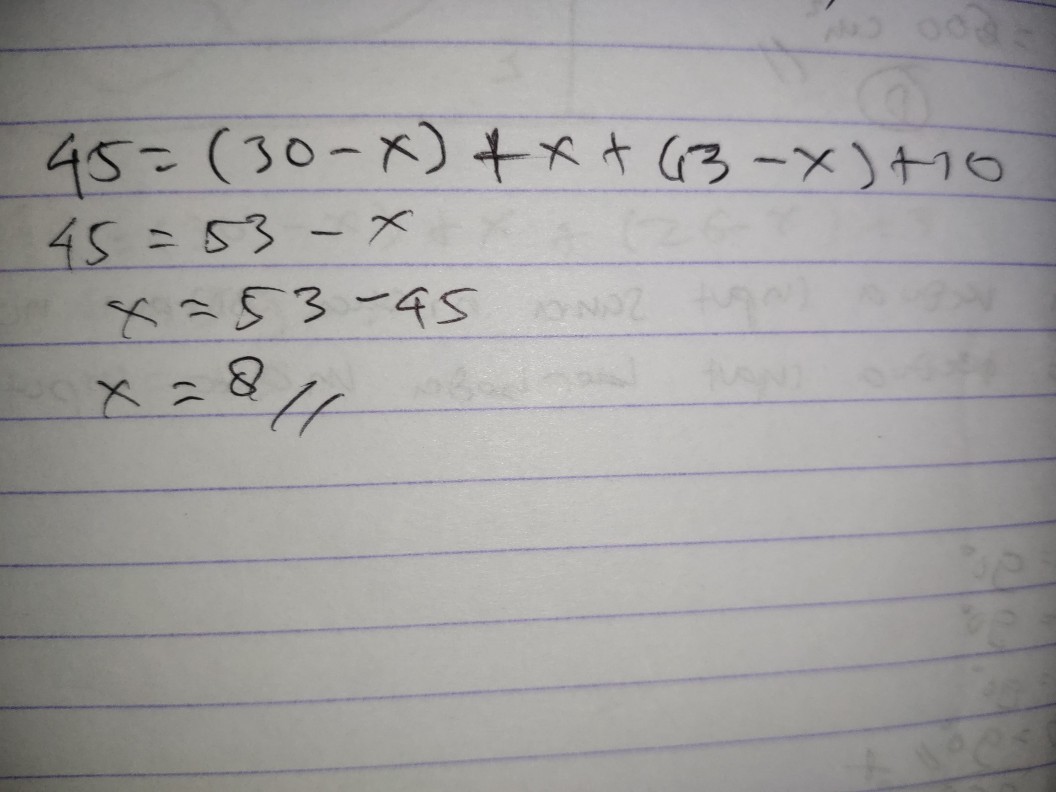 45 = (30 - x) + x + (13 - x) + 10
45 = 53 - x
x = 53 - 45
x = 8 //